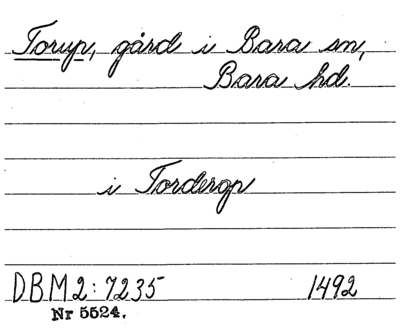 Torup, gård i Bara sn,
Bara hd.
i Torderop
DBM2:7235 1492
Nr 5524.